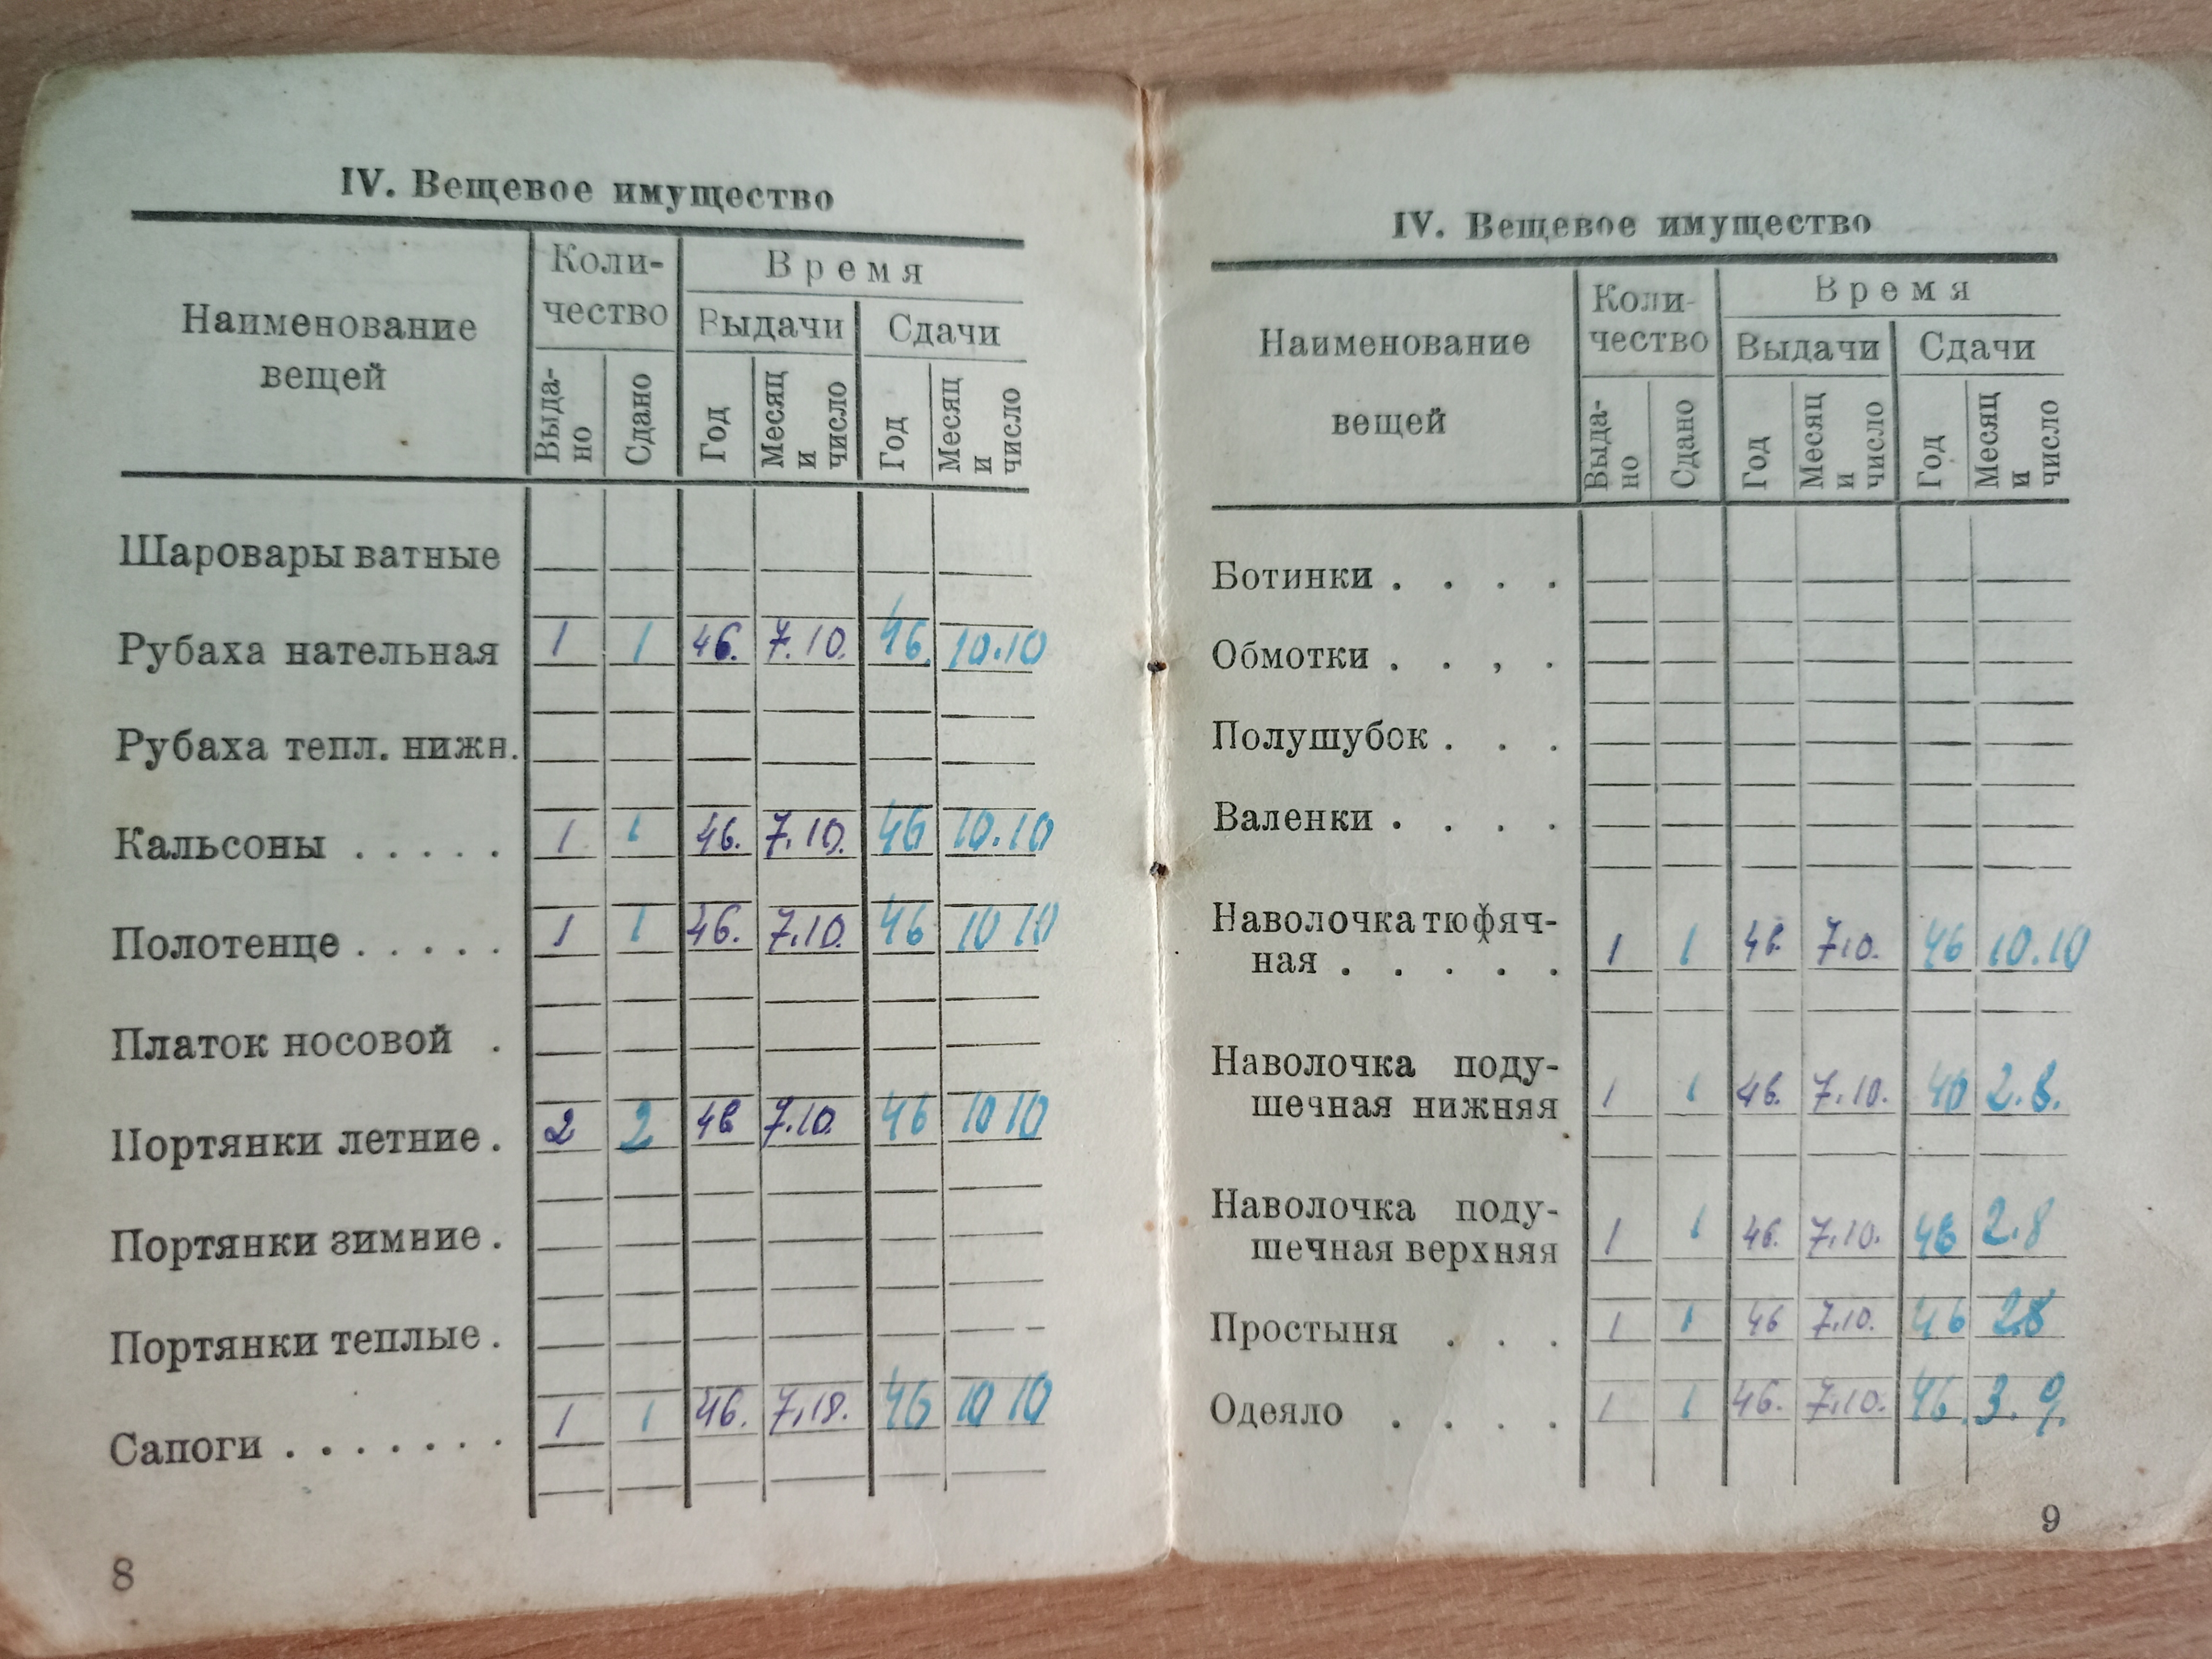 IV. Вещевое имущество
Наименование вещей
Коли-
чество
Время
Выдачи
Сдачи
Выда-
но
Сдано
Год
Месяц
и
число
Год
Месяц
и
число
Шаровары ватные
Рубаха нательная 1 1 46. 7.10. 46. 10.10
Рубаха тепл. нижн.
Кальсоны . . . . . 1 1 46. 7.10. 46 10.10
Полотенце . . . . . 1 1 46. 7.10. 46 10 10
Платок носовой .
Портянки летние . 2 2 46 7.10. 46 10 10
Портянки зимние .
Портянки теплые .
Сапоги . . . . . . . 1 1 46. 7.10. 46 10 10
8
IV. Вещевое имущество
Наименование
вещей
Коли-
чество
Время
Выдачи
Сдачи
Выда-
но
Сдано
Год
Месяц
и
число
Год
Месяц
и
число
Ботинки . . . .
Обмотки . . , .
Полушубок . . .
Валенки . . . .
Наволочка тюфяч-
ная . . . . . 1 1 46. 7.10. 46 10.10
Наволочка поду-
шечная нижняя 1 1 46. 7.10. 46 2.8.
Наволочка поду-
шечная верхняя 1 1 46. 7.10. 46 2.8
Простыня . . . 1 1 46 7.10. 46 28
Одеяло . . . . 1 1 46. 7.10. 46. 3.9.
9